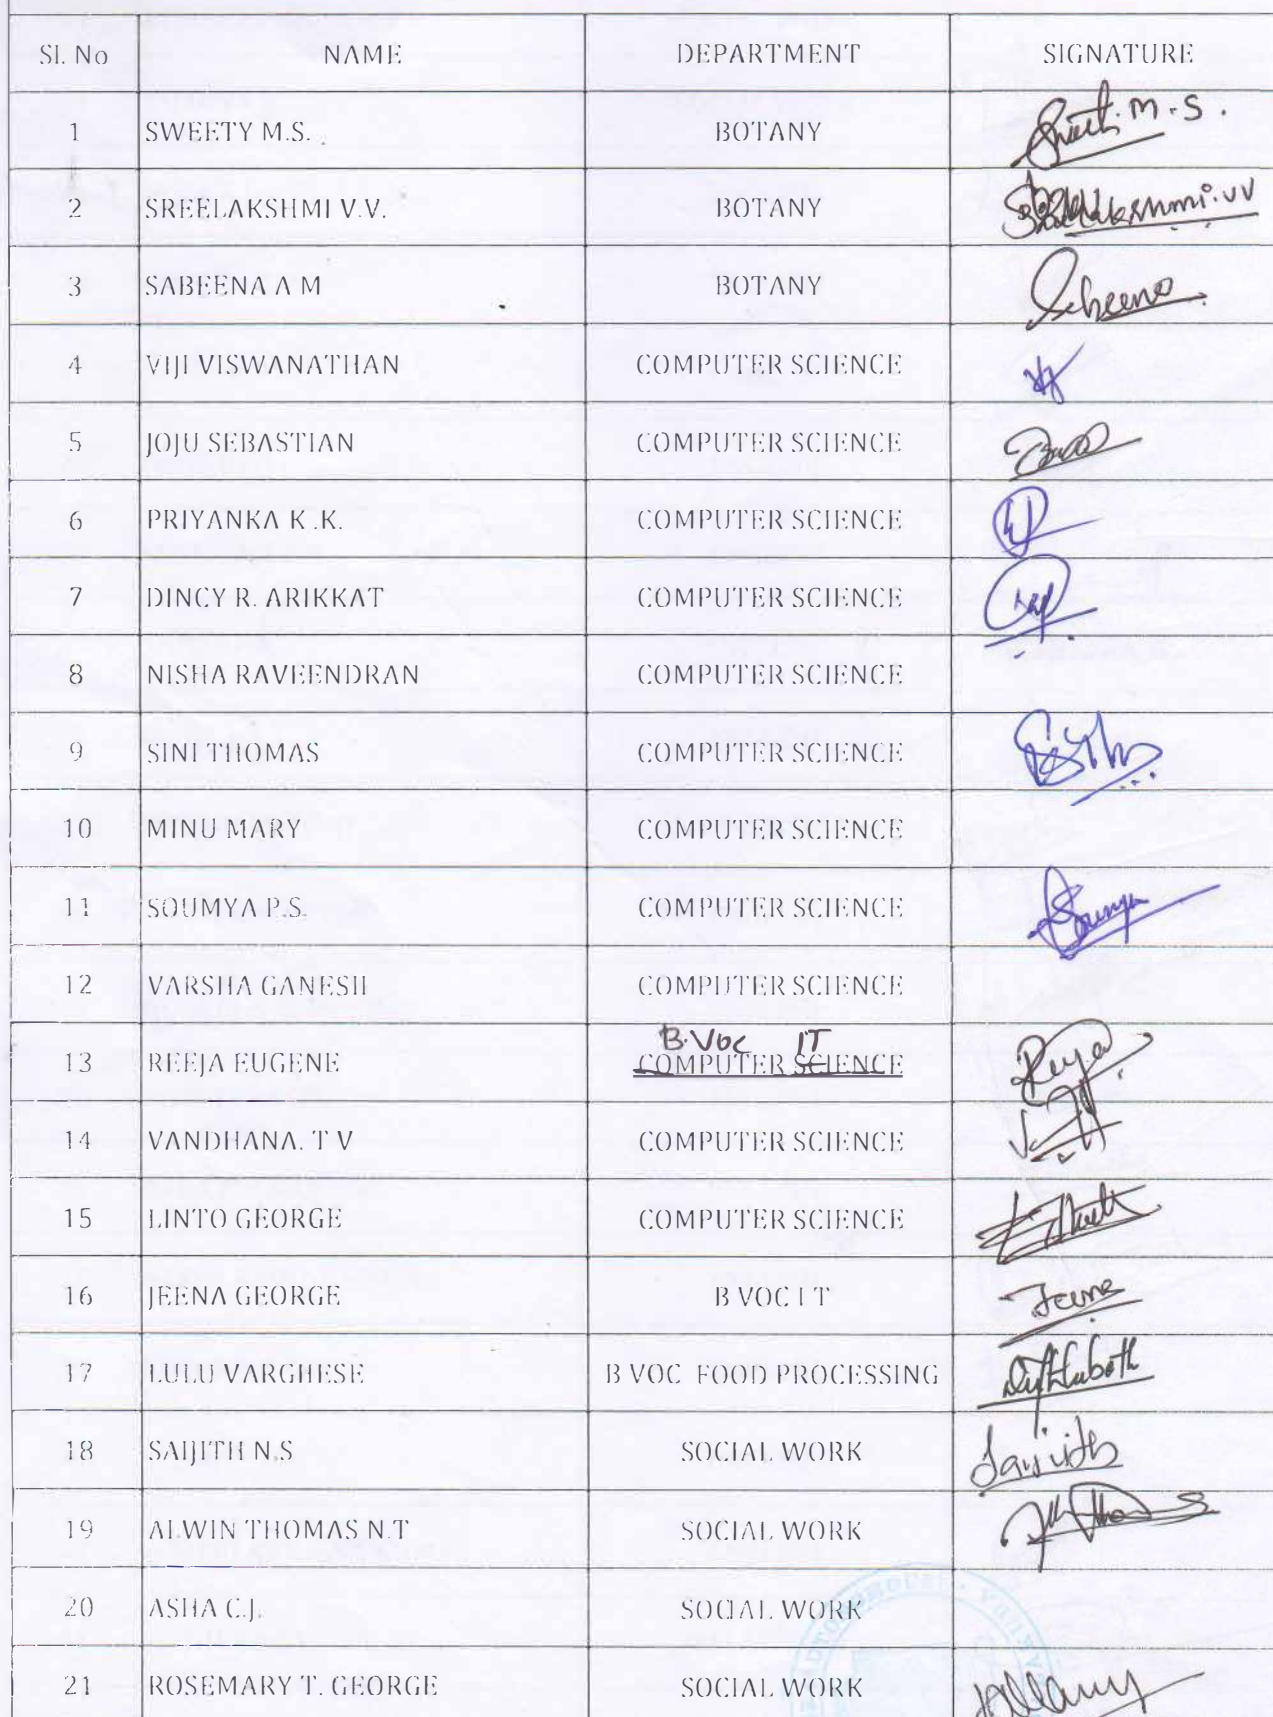 Sl. No NAME DEPARTMENT SIGNATURE
1 SWEETY M.S. BOTANY M.S.
2 SREELAKSHMI V.V. BOTANY
3 SABEENA A M BOTANY
4 VIJI VISWANATHAN COMPUTER SCIENCE
5 JOJU SEBASTIAN COMPUTER SCIENCE
6 PRIYANKA K .K. COMPUTER SCIENCE
7 DINCY R. ARIKKAT COMPUTER SCIENCE
8 NISHA RAVEENDRAN COMPUTER SCIENCE
9 SINI THOMAS COMPUTER SCIENCE
10 MINU MARY COMPUTER SCIENCE
11 SOUMYA P.S. COMPUTER SCIENCE
12 VARSHA GANESH COMPUTER SCIENCE
B.Voc IT
13 REEJA EUGENE COMPUTER SCIENCE
14 VANDHANA. T V COMPUTER SCIENCE
15 LINTO GEORGE COMPUTER SCIENCE
16 JEENA GEORGE B VOC I T
17 LULU VARGHESE B VOC FOOD PROCESSING
18 SAIJITH N.S SOCIAL WORK
19 ALWIN THOMAS N.T SOCIAL WORK
20 ASHA C.J. SOCIAL WORK
21 ROSEMARY T. GEORGE SOCIAL WORK